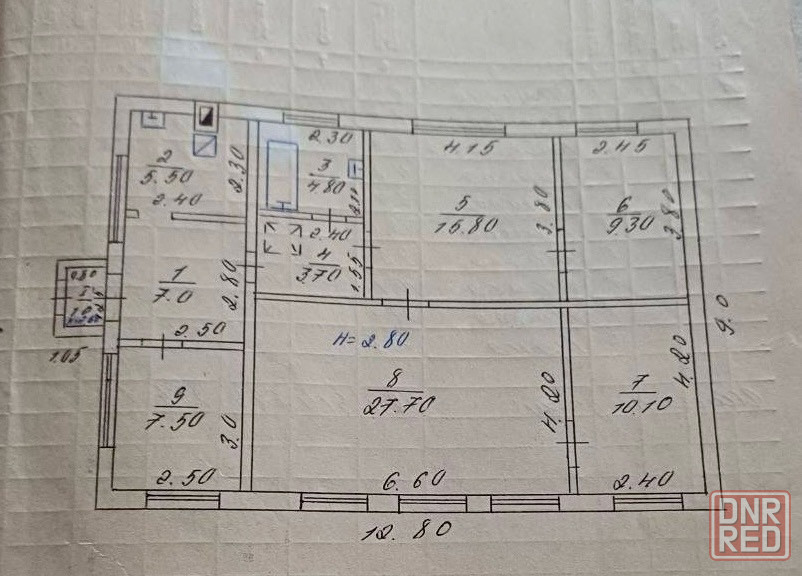 2
5.50
2.40
2.30
2.30
3
4.80
2.40
4
3.70
1.55
4.15
5
15.80
3.80
2.45
6
9.30
3.80
0.80
I
1.0
1.05
1
7.0
2.80
2.50
9
7.50
3.0
2.50
H=2.80
8
27.70
4.20
6.60
7
10.10
4.20
2.40
9.0
12.80
DNR
RED